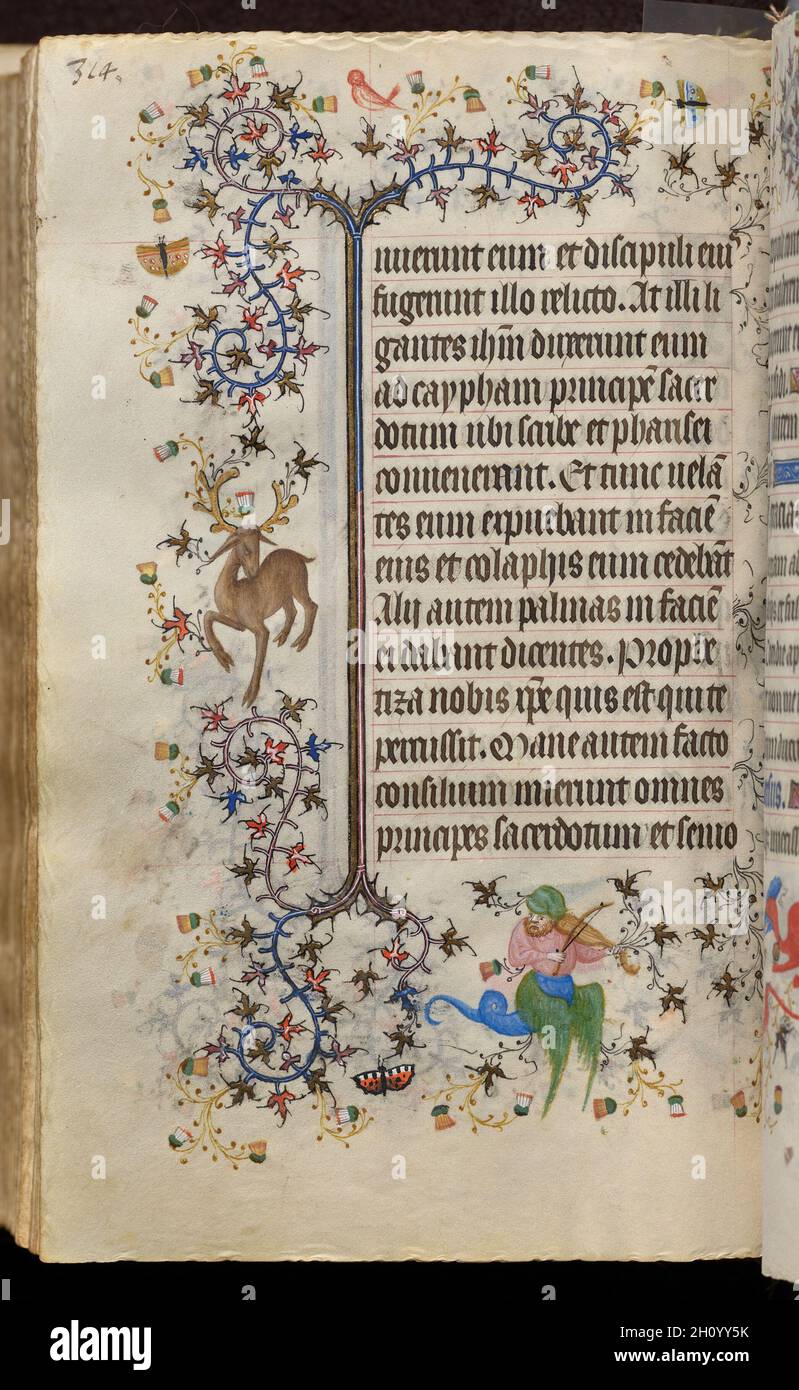 314.
uierunt eum et discipuli eius
fugerunt illo relicto. At illi li
gantes ihm duxerunt eum
ad caypham principe sacer
dotum ubi scribe et pharisei
conuenerant. Et tunc uela
tes eum expuebant in facie
eius et colaphis eum cedebat
Alij autem palmas in facie
ei dabant dicentes. Prophe
tiza nobis xpe quis est qui te
percussit. Mane autem facto
consilium inierunt omnes
principes sacerdotum et senio
alamy
Image ID: 2H0YY5K
www.alamy.com